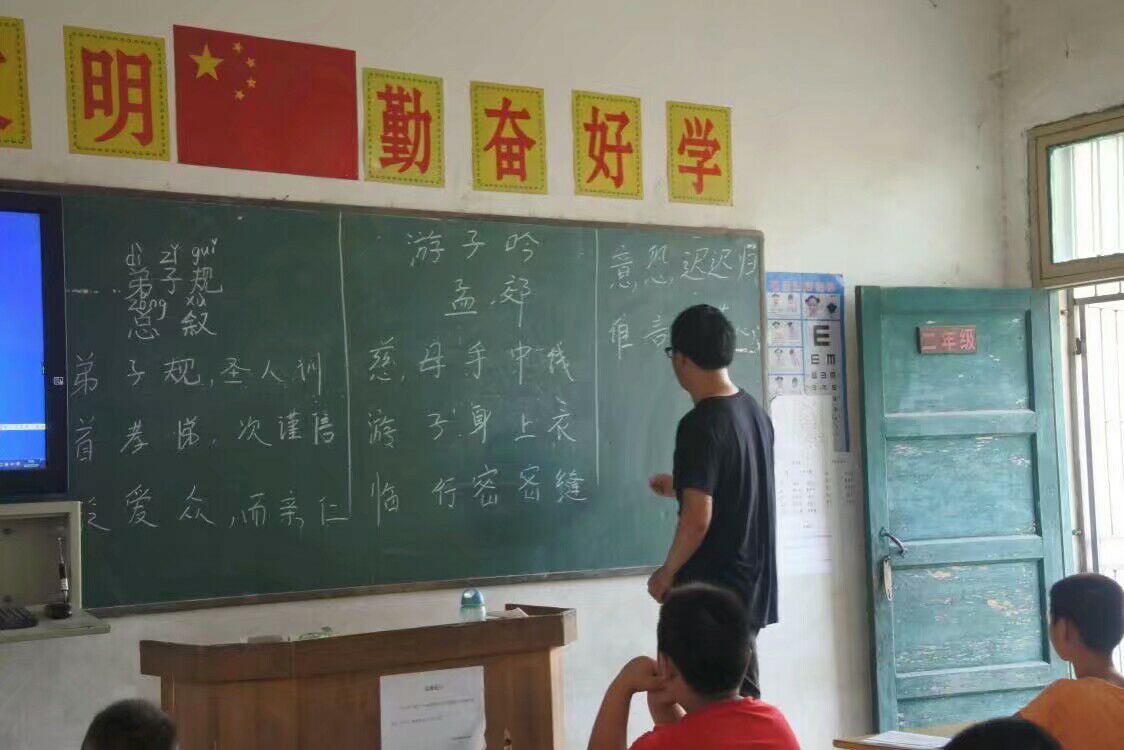 明 勤奋好学
dì zǐ guī
弟子规
zǒng xù
总叙
弟子规,圣人训
首孝悌,次谨信
泛爱众,而亲仁
游子吟
孟郊
慈母手中线
游子身上衣
临行密密缝
意恐迟迟归
谁言 心
二年级
E